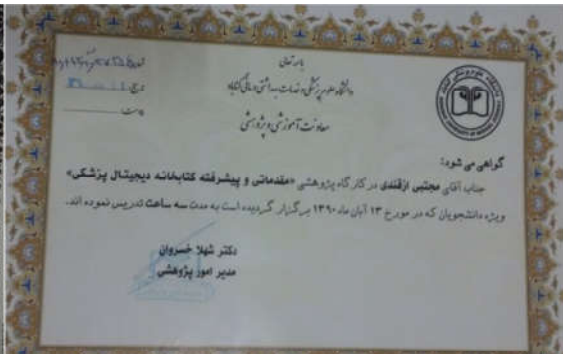 باسمه تعالی
دانشگاه علوم پزشکی و خدمات بهداشتی درمانی گناباد
معاونت آموزشی و پژوهشی
گواهی می شود:
جناب آقای مجتبی ازقندی در کارگاه پژوهشی «مقدماتی و پیشرفته کتابخانه دیجیتال پزشکی»
ویژه دانشجویان که در مورخ ۱۳ آبان ماه ۱۳۹۰ برگزار گردیده است به مدت سه ساعت تدریس نموده اند.
دکتر شهلا خسروان
مدیر امور پژوهشی